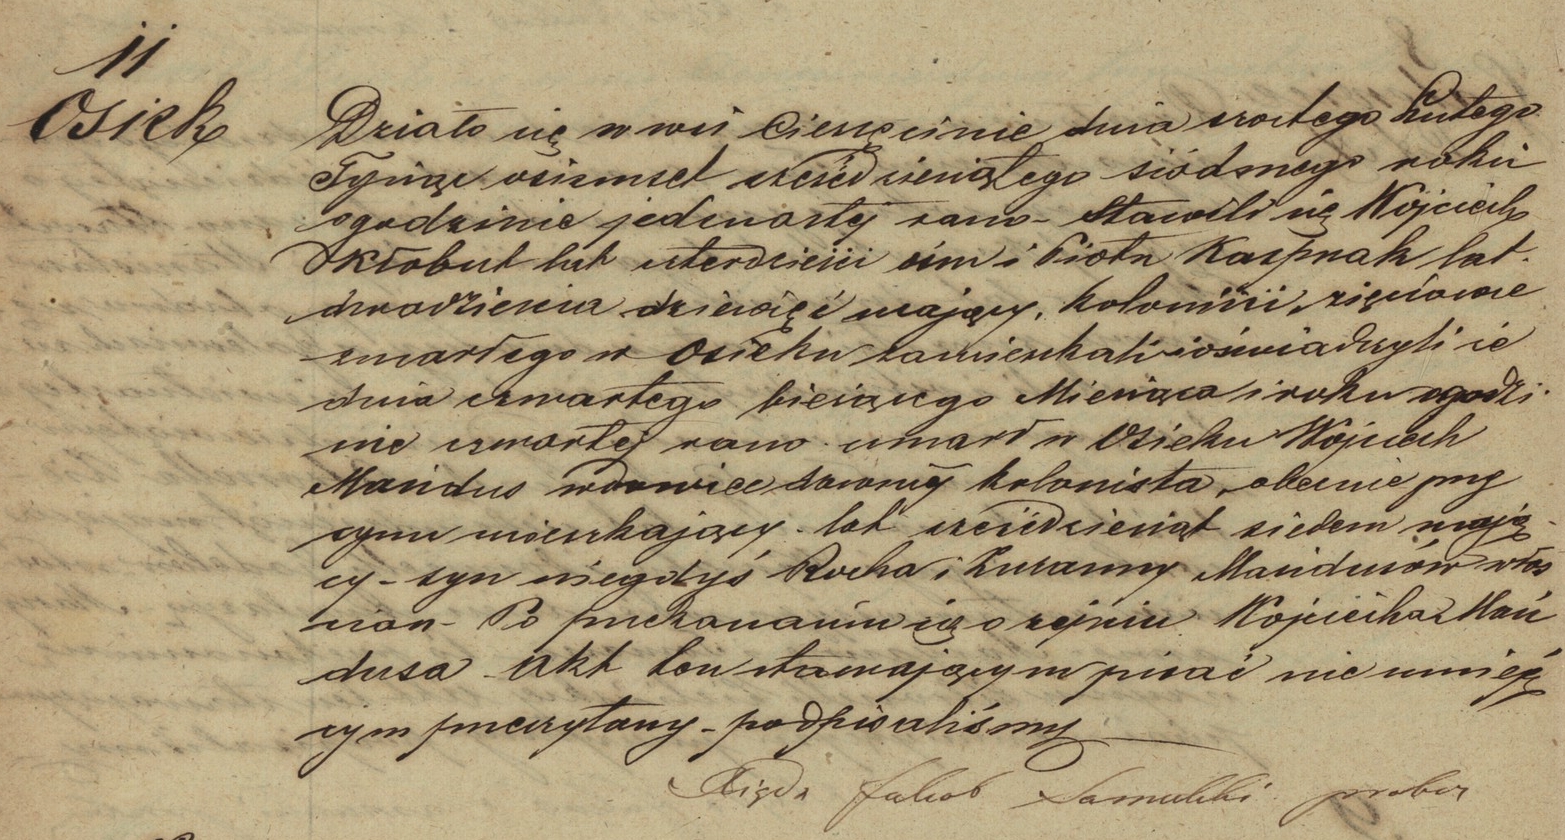 11
Osiek
Działo się w wsi Cieszęcinie dnia szóstego Lutego
Tysiąc osiemset sześćdziesiątego siódmego roku
o godzinie jedenastej rano - Stawili się Wojciech
Skłobut lat czterdzieści ośm i Piotr Kasprzak lat
dwadzieścia dziewięć mający, koloniści, zięciowie
zmarłego w Osieku zamieszkali i oświadczyli iż
dnia czwartego bieżącego Miesiąca i roku o godzi
nie czwartej rano umarł w Osieku Wojciech
Mandus wdowiec dawniej kolonista, obecnie przy
synu mieszkający lat sześćdziesiąt siedem mają
cy - syn niegdyś Rocha i Zuzanny Mandusów włoś
cian - Po przekonaniu się o zejściu Wojciecha Man
dusa Akt ten stawającym pisać nie umieją
cym przeczytany - podpisaliśmy
Ksiądz Jakób Samulski prob